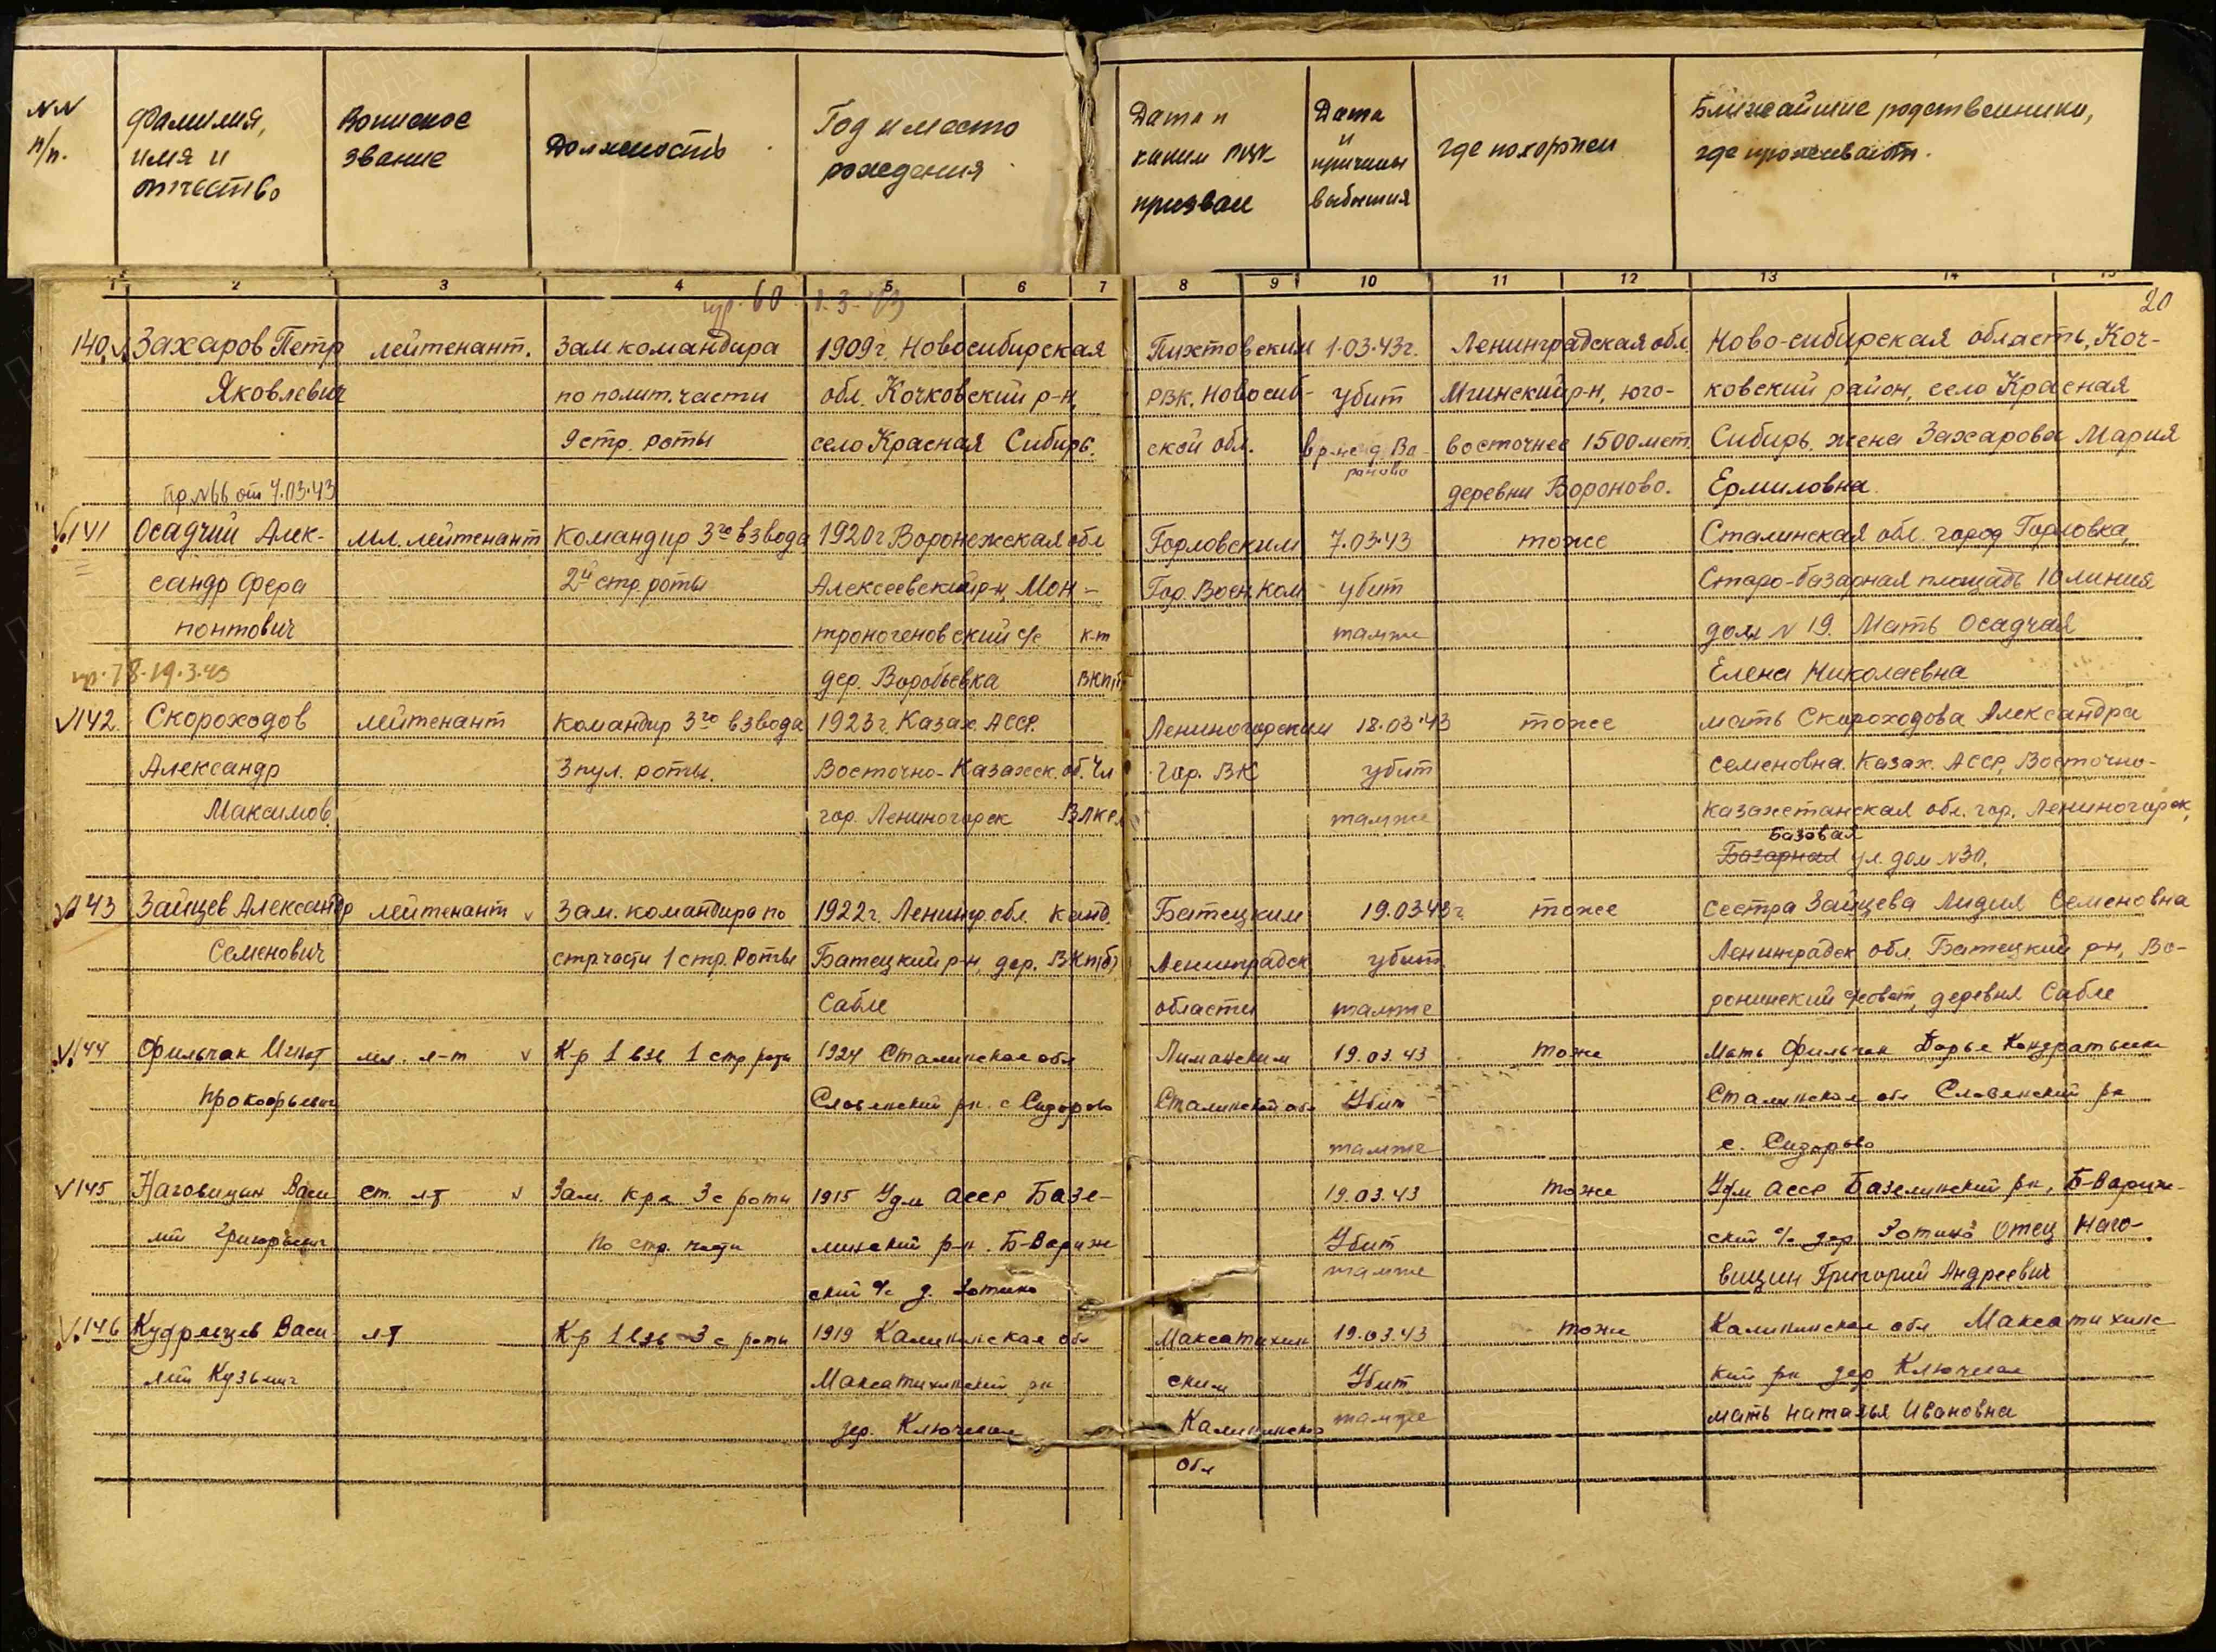 NN п/п.
Фамилия, имя и отчество
Воинское звание
Должность
Год и место рождения
Дата и каким РВК призван
Дата и причины выбытия
где похоронен
Ближайшие родственники, где проживают.
1 2 3 4 5 6 7 8 9 10 11 12 13 14 15
пр. 60 1.3.43
20
140. Захаров Петр лейтенант. Зам. командира 1909г. Новосибирская Пихтовским 1.03.43г. Ленинградская обл. Ново-сибирская область, Коч-
Яковлевич по полит. части обл. Кочковский р-н, РВК. Новосиб- убит Мгинский р-н, юго- ковский район, село Красная
9 стр. роты село Красная Сибирь. ской обл. в р-не д. Во- восточнее 1500 мет. Сибирь, жена Захарова Мария
роново
пр. №66 от 7.03.43 деревни Вороново. Ермиловна
141 Осадчий Алек- мл. лейтенант Командир 3го взвода 1920г Воронежская обл Горловским 7.03.43 тоже Сталинская обл. город Горловка,
сандр Фера 2й стр. роты Алексеевский р-н, Мон- Гор. Воен. Ком убит Старо-базарная площадь 10 линия
понтович троногеновский с/с к-т тамже дом N 19. Мать Осадчая
пр. 78-19.3.43 дер. Воробьевка ВКП(б) Елена Николаевна
142. Скороходов лейтенант Командир 3го взвода 1923г. Казах. АССР. Лениногорским 18.03.43 тоже мать Скороходова Александра
Александр 3 пул. роты. Восточно-Казахск. об. Чл Гор. ВК убит Семеновна. Казах. АССР, Восточно-
Максимов. гор. Лениногорск ВЛКСМ тамже казахстанская обл. гор. Лениногорск,
Базовая
Базарная ул. дом N30.
143 Зайцев Александр лейтенант Зам. командира по 1922г. Ленингр. обл. канд. Батецким 19.03.43г тоже сестра Зайцева Лидия Семеновна
Семенович стр части 1 стр. Роты Батецкий р-н, дер. ВКП(б) Ленинградск убит Ленинградск обл. Батецкий р-н, Во-
Сабле области тамже ронинский с/совет, деревня Сабле
144 Фильчак Игнат мл. л-т К-р 1 взв 1 стр роты 1924 Сталинская обл Лиманским 19.03.43 тоже Мать Фильчак Дарья Кондратьевна
Прокофьевич Славянский рн. с Сидорово Сталинской обл Убит Сталинская обл Славянский рн
тамже с. Сидорово
145 Наговицын Васи ст. лт Зам. к-ра 3 с роты 1915 Удм АССР Базе- 19.03.43 тоже Удм АССР Базелинский рн, Б-Вариж-
лий Григорьевич по стр. части линский р-н. Б-Вариж Убит ский с/с дер Зотино Отец Наго-
ский с/с д. Зотино тамже вицин Григорий Андреевич
146 Кудрявцев Васи лт К-р 1 взв 3 с роты 1919 Калининская обл Максатихин 19.03.43 тоже Калининская обл Максатихинс
лий Кузьмич Максатихинский рн ским Убит кий рн дер Ключевая
дер. Ключевая Калининской тамже мать Наталья Ивановна
обл